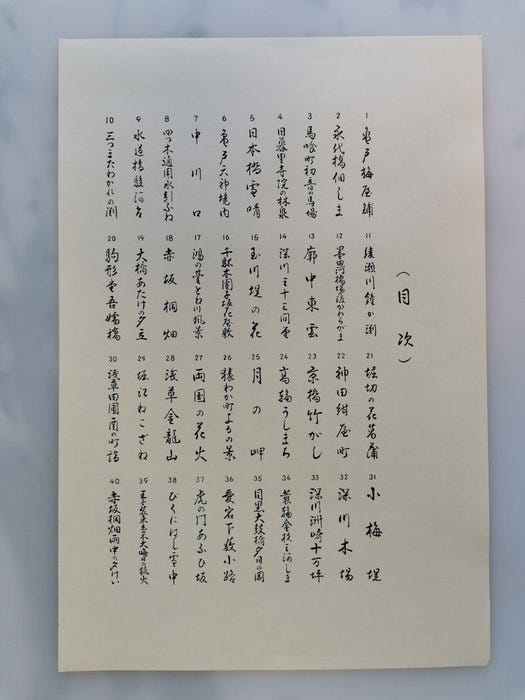 (目次)
1 亀戸梅屋舗
2 永代橋佃しま
3 馬喰町初音の馬場
4 日暮里寺院の林泉
5 日本橋雪晴
6 亀戸天神境内
7 中川口
8 四つ木通用水引ふね
9 水道橋駿河台
10 三つまたわかれの渕
11 綾瀬川鐘か渕
12 墨田河橋場渡かわらがま
13 廓中東雲
14 深川三十三間堂
15 玉川堤の花
16 千駄木團子坂花屋敷
17 鴻の台とね川風景
18 赤坂桐畑
19 大橋あたけの夕立
20 駒形堂吾嬬橋
21 堀切の花菖蒲
22 神田紺屋町
23 京橋竹がし
24 高輪うしまち
25 月の岬
26 猿わか町よるの景
27 両国の花火
28 浅草金龍山
29 堀江ねこざね
30 浅草田圃酉の町詣
31 小梅堤
32 深川木場
33 深川洲崎十万坪
34 蓑輪金杉三河しま
35 目黒太鼓橋夕日の岡
36 愛宕下薮小路
37 虎の門あふひ坂
38 びくにはし雪中
39 王子装束ゑの木大晦日の狐火
40 赤坂桐畑雨中夕けい